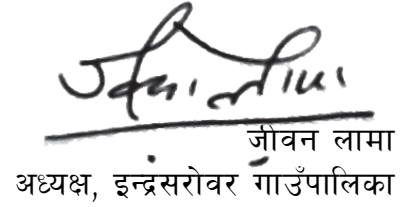 जीवन लामा
अध्यक्ष, इन्द्रसरोवर गाउँपालिका